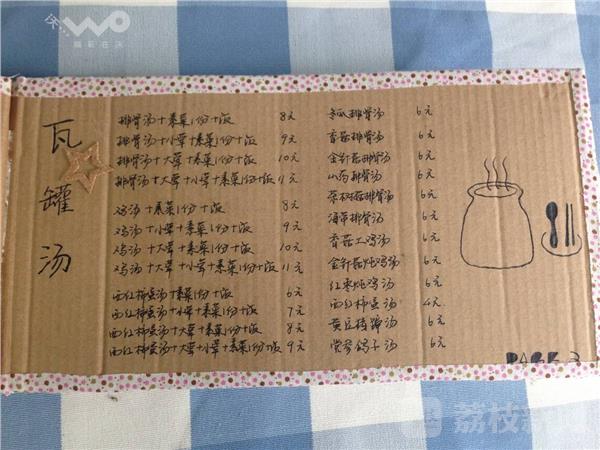 沃...
WO
精彩在沃
瓦罐汤
排骨汤+素菜1份+饭 8元
排骨汤+小荤+素菜1份+饭 9元
排骨汤+大荤+素菜1份+饭 10元
排骨汤+大荤+小荤+素菜1份+饭 11元
鸡汤+素菜1份+饭 8元
鸡汤+小荤+素菜1份+饭 9元
鸡汤+大荤+素菜1份+饭 10元
鸡汤+大荤+小荤+素菜1份+饭 11元
西红柿蛋汤+素菜1份+饭 6元
西红柿蛋汤+小荤+素菜1份+饭 7元
西红柿蛋汤+大荤+素菜1份+饭 8元
西红柿蛋汤+大荤+小荤+素菜1份+饭 9元
冬瓜排骨汤 6元
香菇排骨汤 6元
金针菇排骨汤 6元
山药排骨汤 6元
茶树菇排骨汤 6元
海带排骨汤 6元
香菇土鸡汤 6元
金针菇炖鸡汤 6元
红枣炖鸡汤 6元
西红柿蛋汤 4元
黄豆猪蹄汤 6元
党参鸽子汤 6元
PAGE 3
荔枝新闻